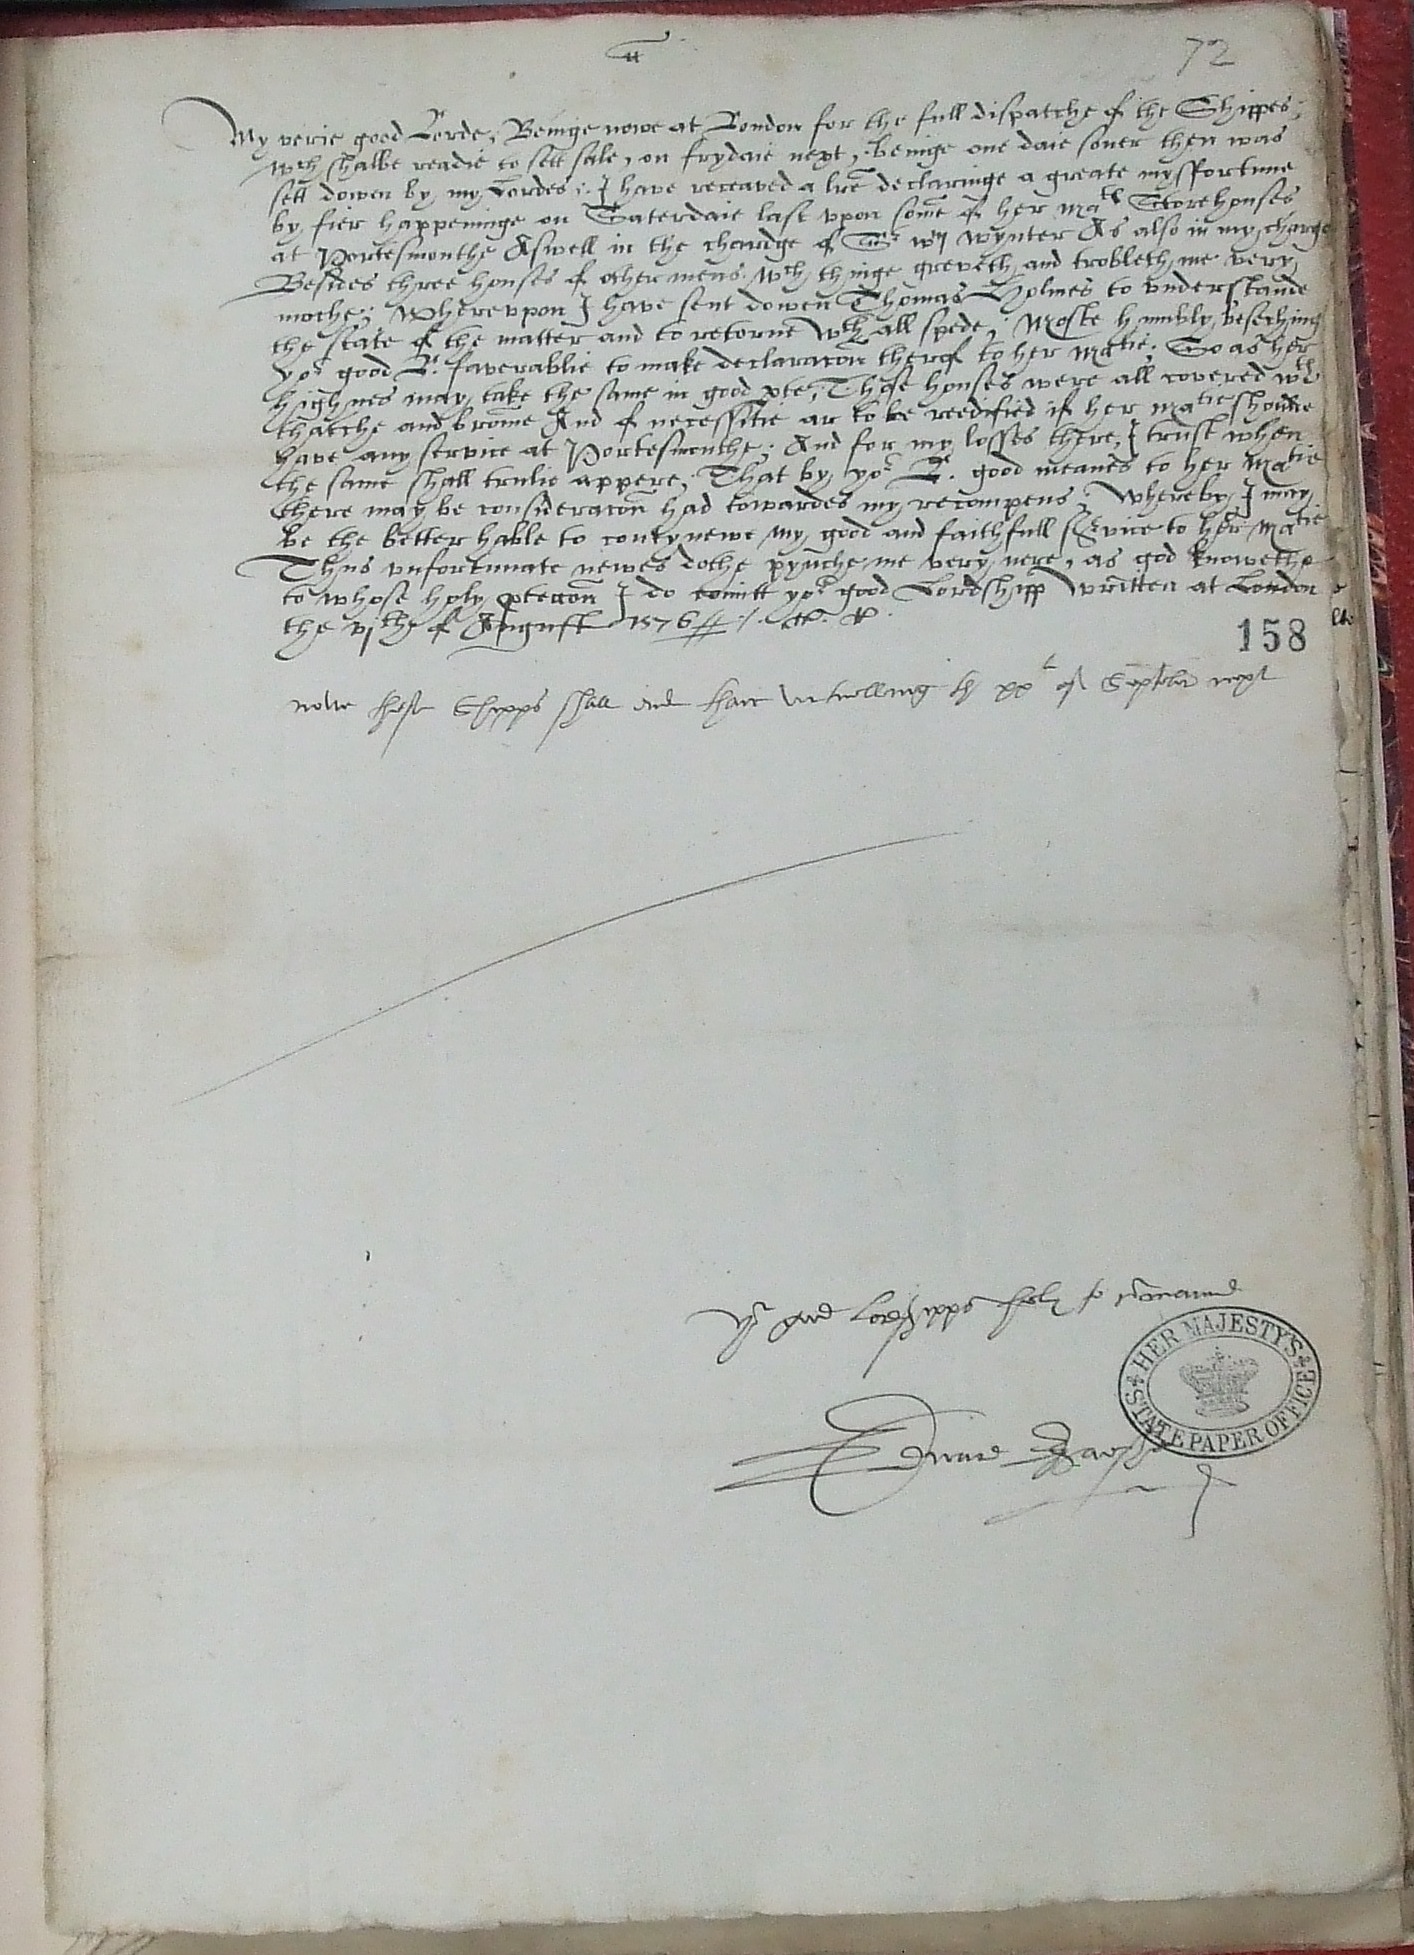 72
My verie good Lorde, Beinge nowe at London for the full dispatche of the Shippes,
wch shalbe readie to sett sale, on frydaie next, beinge one daie soner then was
sett dowen by my Lordes: I have receaved a lre declaringe a greate mysfortune
by fier happeninge on Saterdaie last vpon some of her Mats Storehouses
at Portesmouthe Aswell in the chardge of Sr Wm Wynter As also in my charge
Besides three houses of other mens. Wch thinge greveth and trobleth me very
moche; Wherevpon I have sent dowen Thomas Holmes to vnderstande
the state of the matter and to retorne wth all spede, Moste humbly beseching
yor good L. faverablie to make declaracon therof to her Matie. So as her
highnes may take the same in good pte, Those houses were all covered wth
thatche and brome And of necessitie ar to be reedified if her Matie shoulde
have any service at Portesmouthe; And for my losses there, I trust when
the same shall trulie appere, That by yor L. good meanes to her Matie
there may be consideracon had towardes my recompens, Whereby I may
be the better hable to contynewe my good and faithfull service to her Matie
Thus vnfortunate newes dothe pynche me very nere, as god knowethe
to whose holy pteccon I do comitt yor good Lordshipp Written at London
the vjth of August 1576
158
nowe these Shipps shall end thair victuelling the xx of September next
yr good Lordshipps holy to comaund
Edward Baeshe
HER MAJESTY'S
STATE PAPER OFFICE